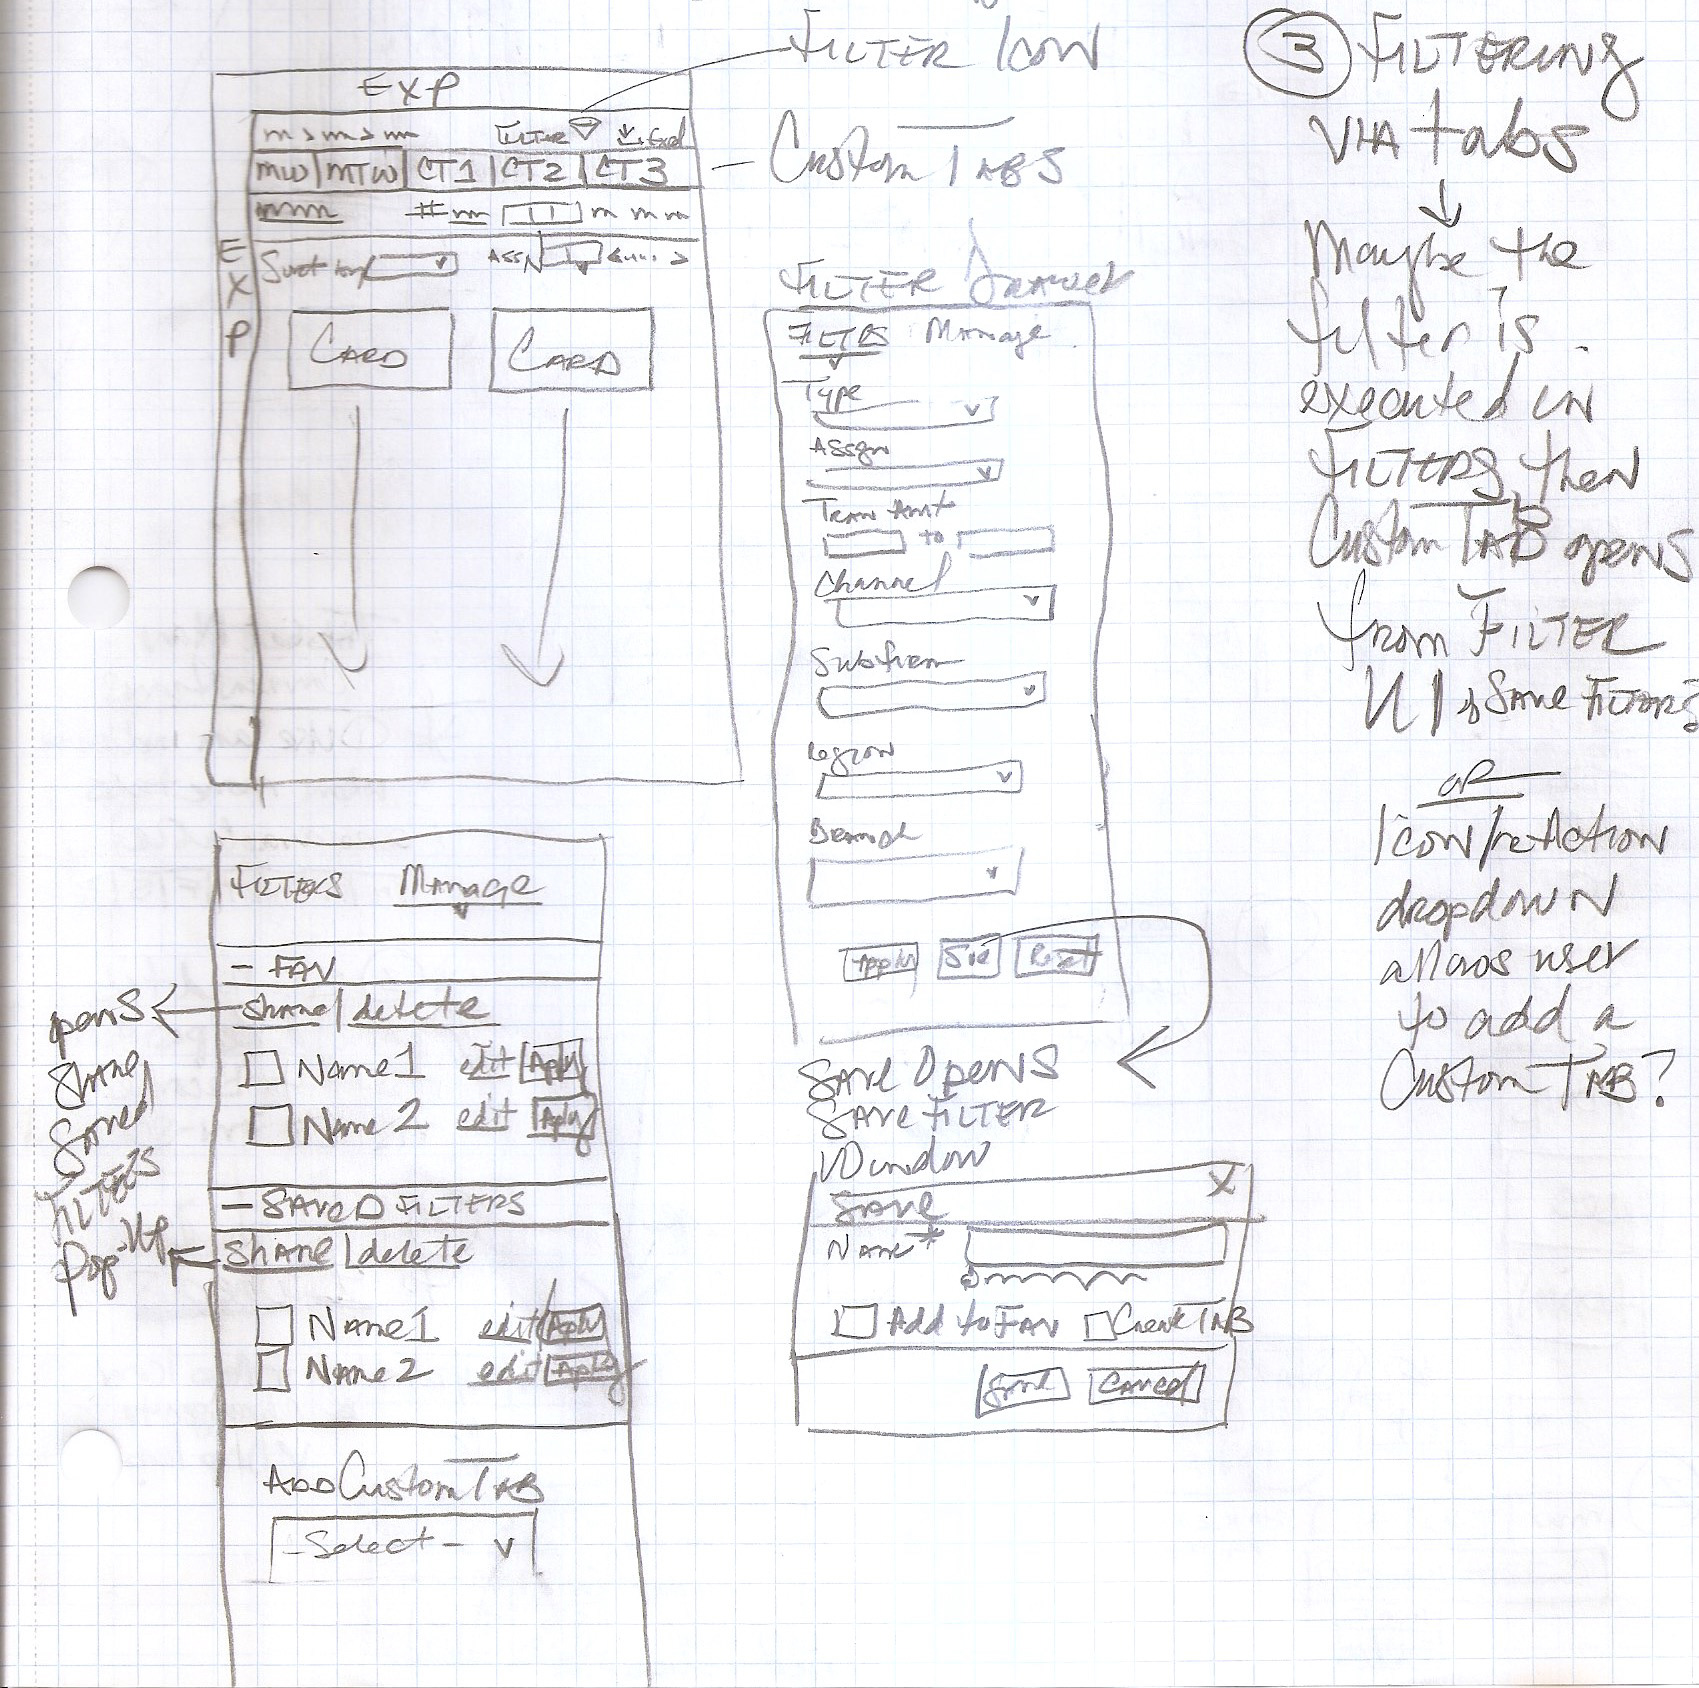 FILTER ICON
Custom TABS
EXP
FILTER
MW MTW CT1 CT2 CT3
EXP
CARD CARD
FILTER Drawer
FILTRS Manage
Type
Assgn
Tran Amt
to
Channel
Region
Branch
Apply Sve Reset
Save Opens
Save FILTER
Window
SAVE X
Name*
Add to FAV Create TAB
Save Cancel
FILTERS Manage
- FAV
Share/delete
Name1 edit Apply
Name2 edit Apply
- SAVED FILTERS
Share/delete
Name1 edit Apply
Name2 edit Apply
ADD Custom TAB
-Select- v
opens
Share
Saved
FILTERS
Pop-Up
3 FILTERING
VIA tabs
Maybe the
filter is
executed in
FILTERS, then
Custom TAB opens
from FILTER
UI & Save FILTERS
OR
Icon/reAction
dropdown
allows user
to add a
Custom TAB?